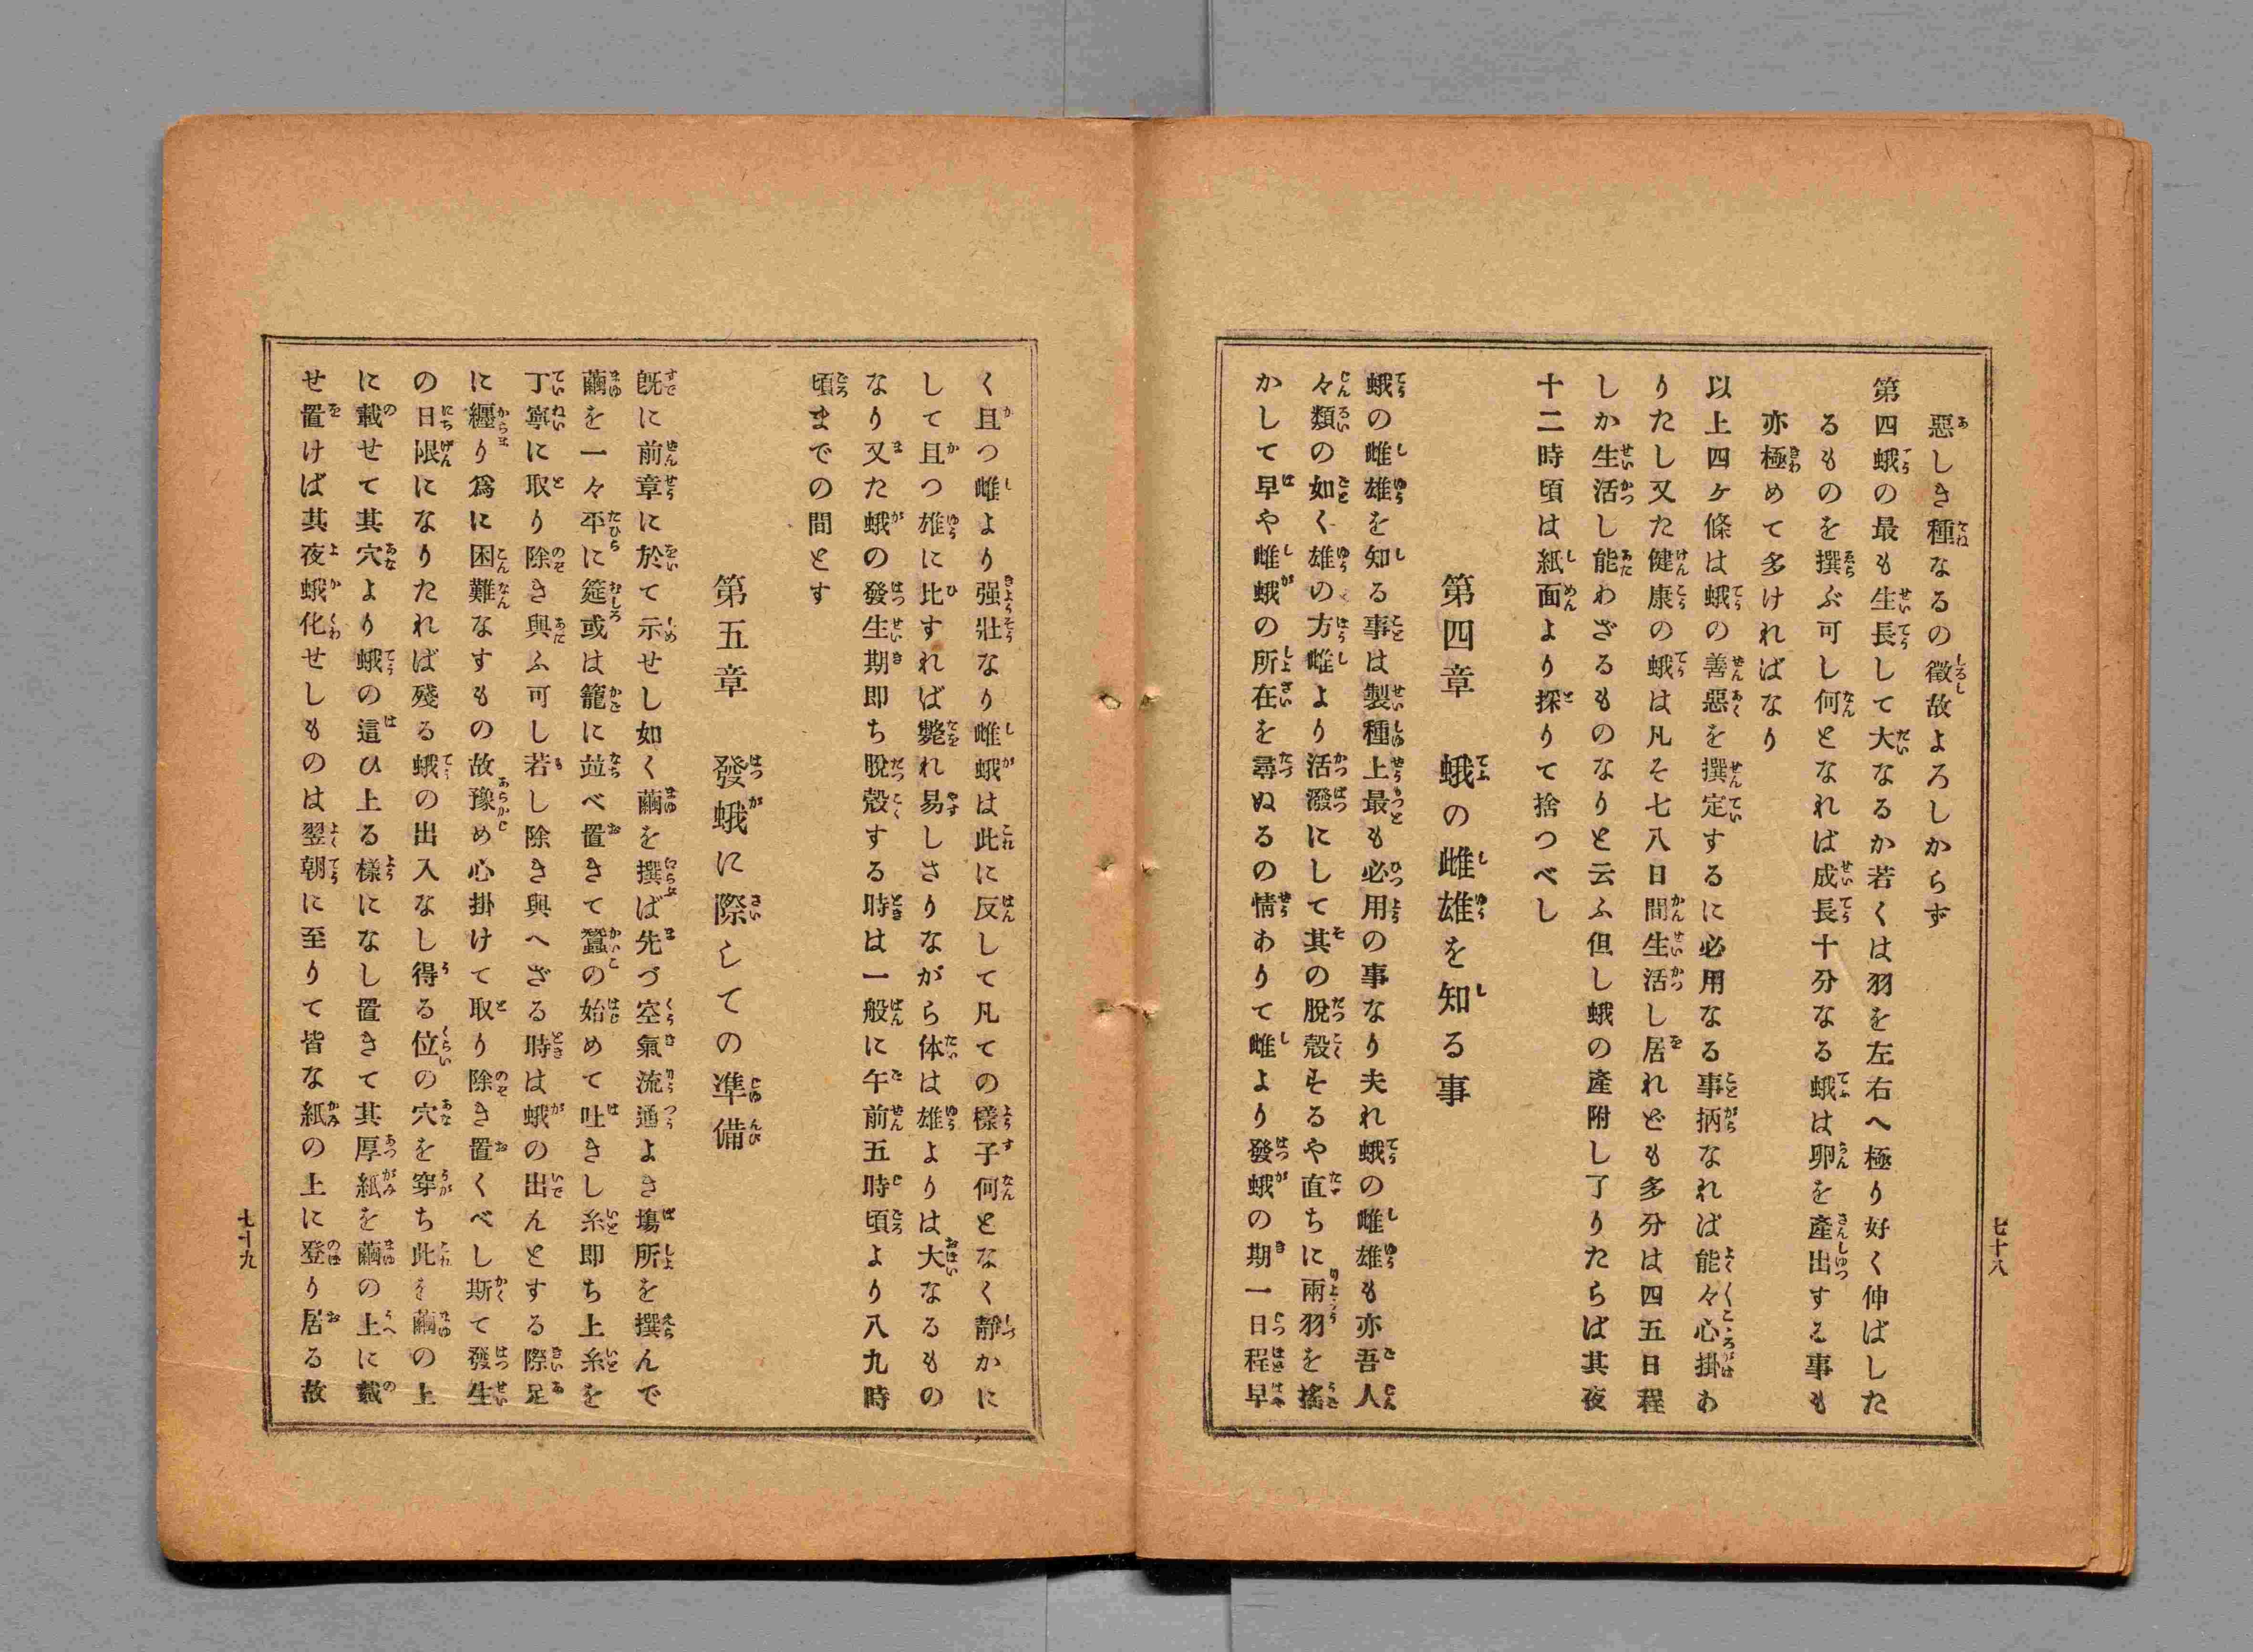 惡しき種なるの徵故よろしからず
第四蛾の最も生長して大なるか若くは羽を左右へ極り好く伸ばした
るものを撰ぶ可し何となれば成長十分なる蛾は卵を產出する事も
亦極めて多ければなり
以上四ヶ條は蛾の善惡を撰定するに必用なる事柄なれば能々心掛わ
りたし又た健康の蛾は凡そ七八日間生活し居れども多分は四五日程
しか生活し能わざるものなりと云ふ但し蛾の產附し了りたらば其夜
十二時頃は紙面より探りて捨つべし
第四章 蛾の雌雄を知る事
蛾の雌雄を知る事は製種上最も必用の事なり夫れ蛾の雌雄も亦吾人
々類の如く雄の方雌より活潑にして其の脫殼するや直ちに兩羽を搖
かして早や雌蛾の所在を尋ぬるの情わりて雌より發蛾の期一日程早
七十八
く且つ雌より强壯なり雌蛾は此に反して凡ての樣子何となく靜かに
して且つ雄に比すれば斃れ易しさりながら体は雄よりは大なるもの
なり又た蛾の發生期即ち脫殼する時は一般に午前五時頃より八九時
頃までの間とす
第五章 發蛾に際しての準備
旣に前章に於て示せし如く繭を撰ば先づ空氣流通よき塲所を撰んで
繭を一々平に筵或は籠に竝べ置きて蠶の始めて吐きし糸即ち上糸を
丁寧に取り除き與ふ可し若し除き與へざる時は蛾の出んとする際足
に纒り爲に困難なすもの故豫め心掛けて取り除き置くべし斯て發生
の日限になりたれば殘る蛾の出入なし得る位の穴を穿ち此を繭の上
に載せて其穴より蛾の這ひ上る樣になし置きて其厚紙を繭の上に戴
せ置けば其夜蛾化せしものは翌朝に至りて皆な紙の上に登り居る故
七十九